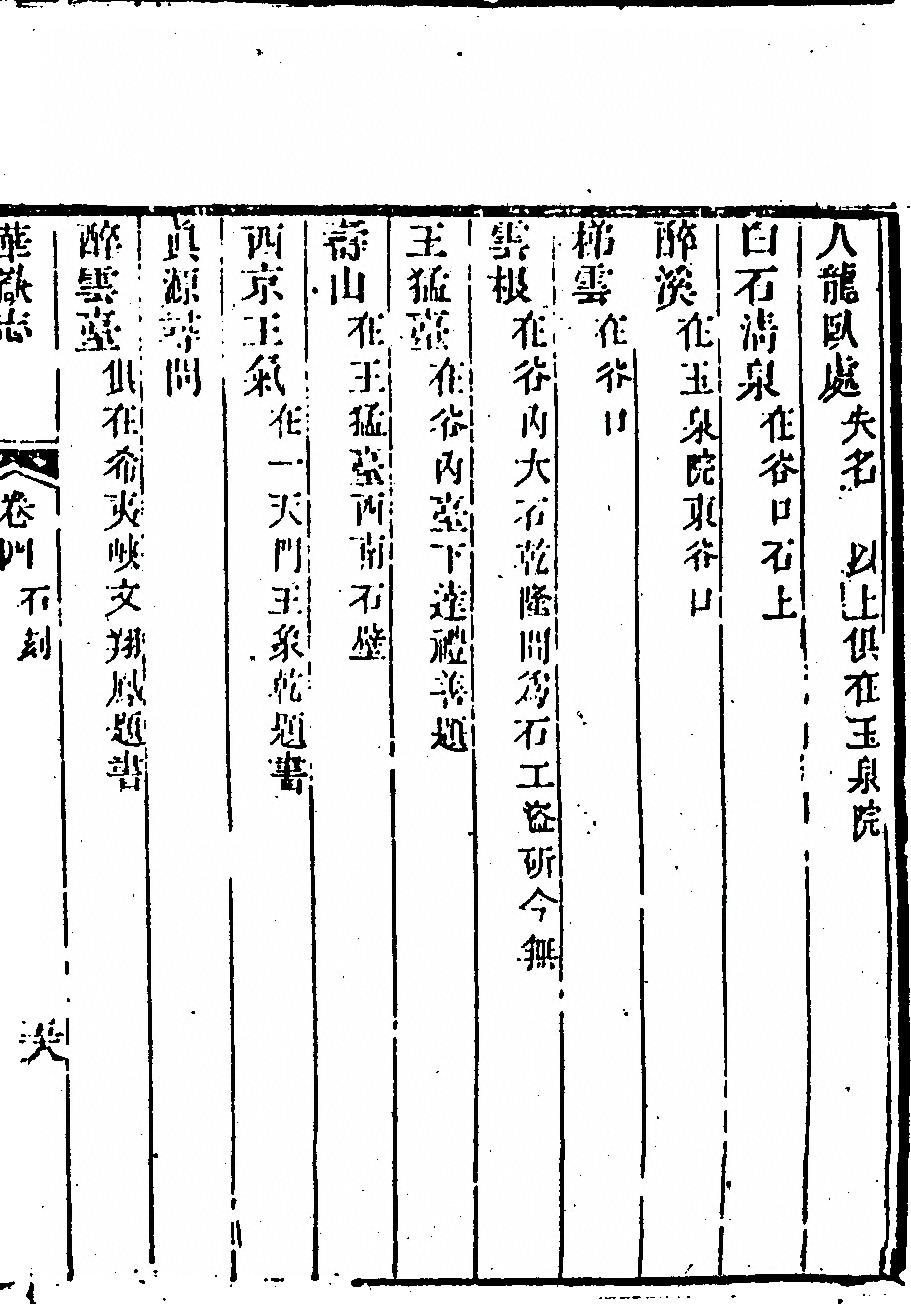 人龍臥處失名 以上俱在玉泉院
白石淸泉在谷口石上
醉溪在玉泉院東谷口
梯雲在谷口
雲根在谷內大石乾隆間爲石工盜斫今無
王猛臺在谷內臺下達禮善題
壽山在王猛臺西南石壁
西京王氣在一天門王象乾題書
眞源尋問
醉雲臺俱在希夷峽文翔鳳題書
華嶽志 卷四 石刻